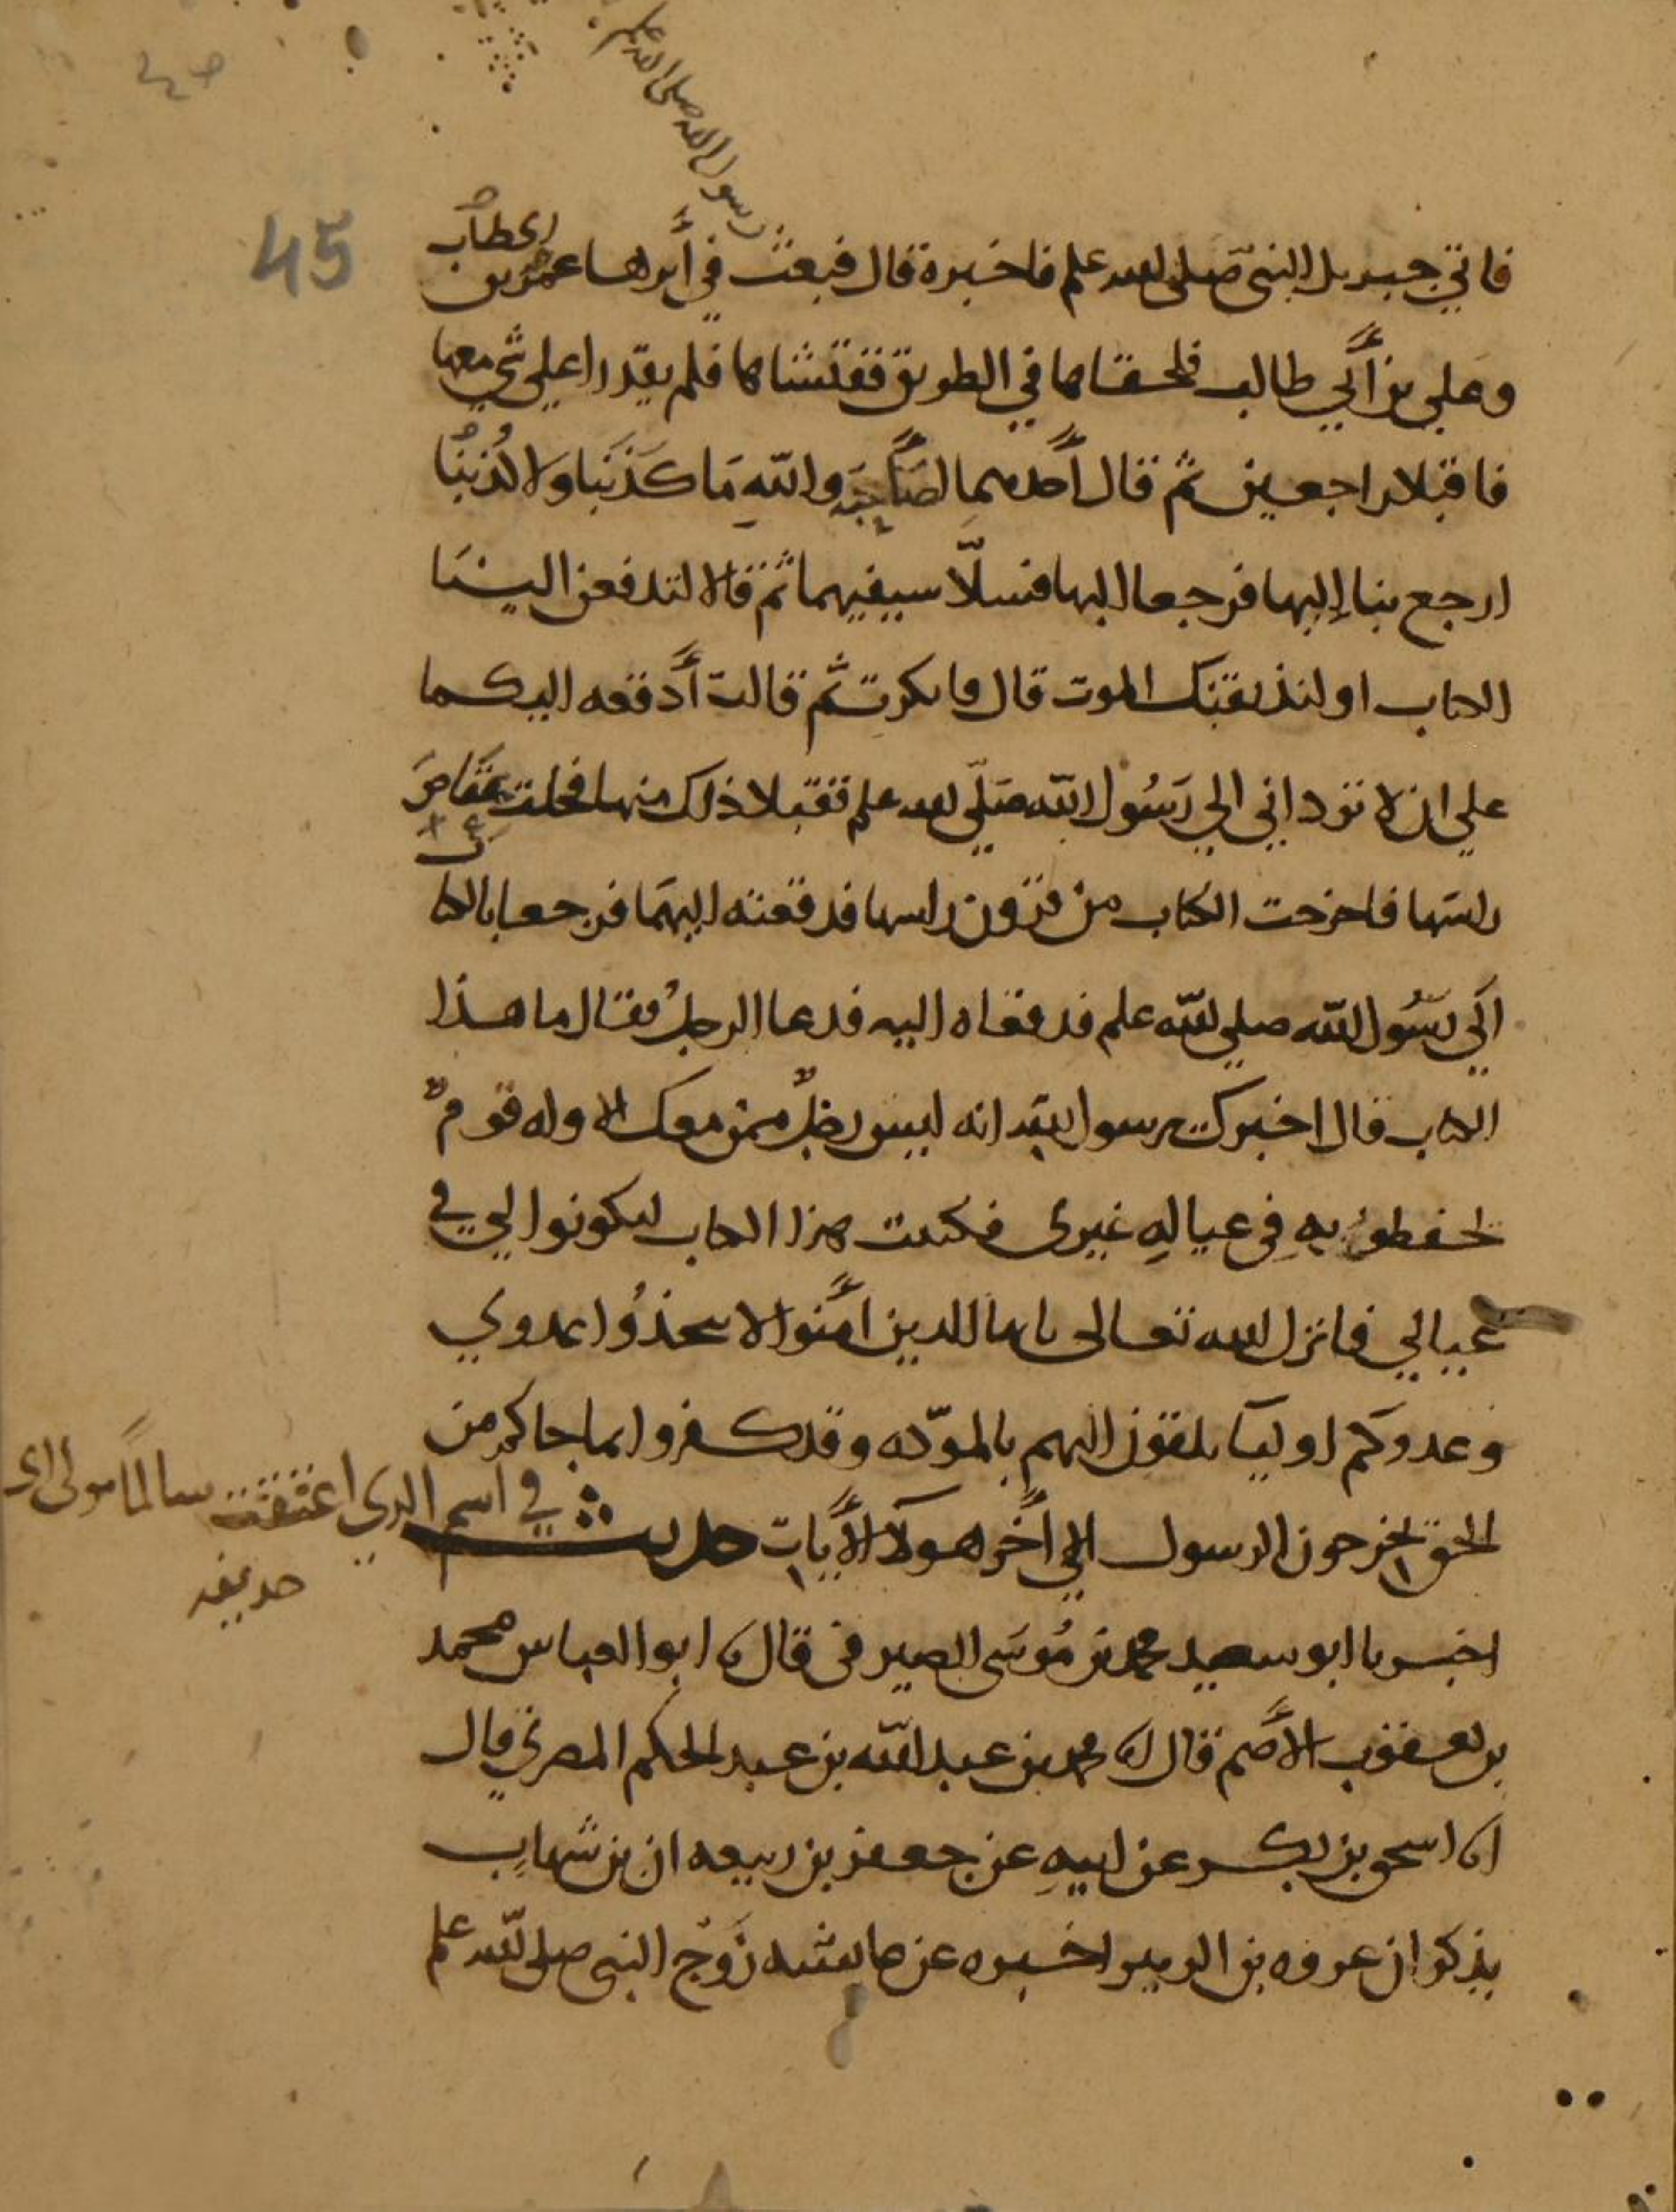 رسول الله صلى الله علم
45
فاتي جبريل النبي صلى الله علم فاخبره قال فبعث في أثرها عمر بن الخطاب
وعلي بن أبي طالب فلحقاها في الطريق ففتشاها فلم يقدرا علي شي معها
فاقبلا راجعين ثم قال أحدهما لصاحبه والله مَا كَذَبَنا ولا كُذِبنُا
ارجع بنا إليها فرجعا اليها فسلّا سيفيهما ثم قالا لتدفعن الينا
الكتاب او لنذيقنك الموت قال فانكرت ثم قالت أدفعه اليكما
علي ان لا ترداني الي رَسُول الله صلّى الله علم فقبلا ذلك منها فحلت عقاص
راسها فاخرجت الكتاب من قرون راسها فدفعته اليهما فرجعا بالكتا
الي رسُول الله صلي الله علم فدفعاه اليه فدعا الرجلُ فقال ما هذا
الكتاب قال اخبرك يرسول الله انه ليس رجلٌ ممن معك الا وله قومٌ
يحفظوُ بهِ في عيالهِ غيرى فكتبت هذا الكتاب ليكونوا لي في
عيالي فانزل الله تعالى يايها الذين اَمَنوا لا تتخذوُا عدوي
وعدوكم اوليَا تلقون اليهم بالمودّه وقد كفروا بما جاكم من
الحق يخرجون الرسول الي اَخر هولا الأَيات حديث في اسم الذي اعتقت سالماً مولى ابى
حديفه
اخبرنا ابو سعيد محمد بن مُوسَى الصيرفى قال نا ابو العباس محمد
بن يعقوب الأصم قال نا محمد بن عبد الله بن عبد الحكم المصري قال
انا اسحق بن بكر عن ابيهِ عن جعفر بن ربيعه ان بن شهاب
يذكر ان عروه بن الزبير اخبره عن عايشه زوج النبى صلى الله علم